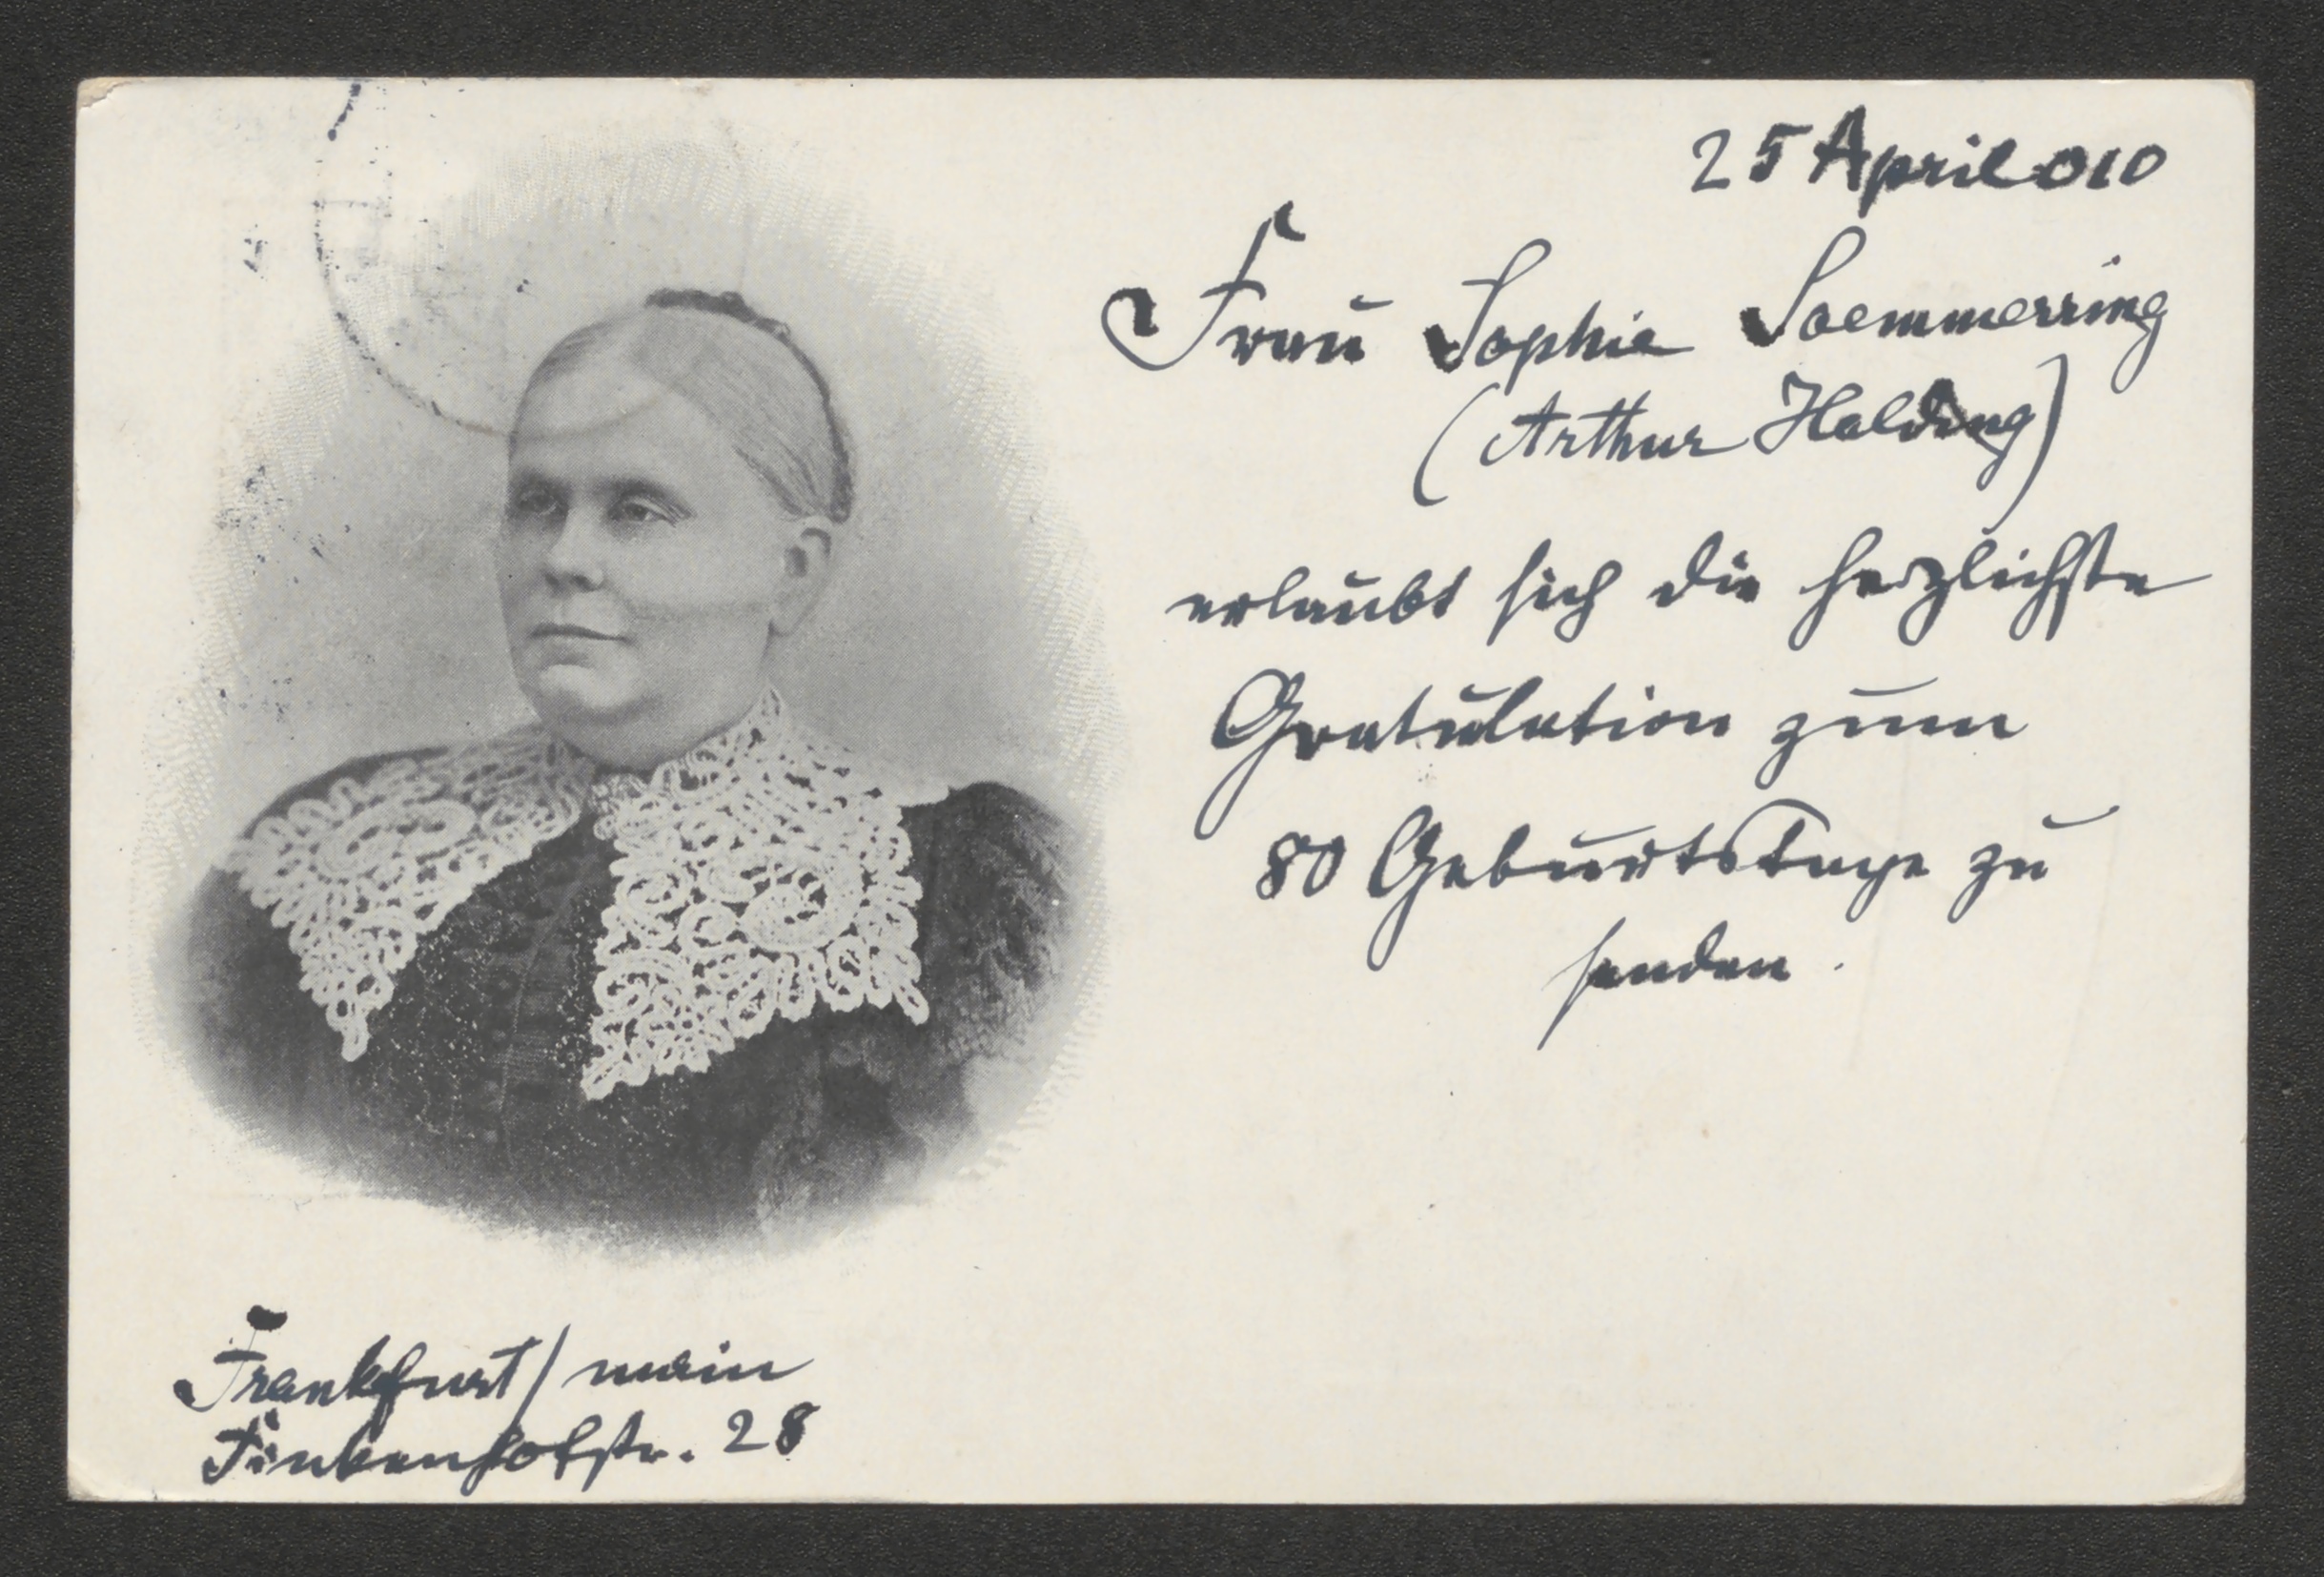 25 April 010
Frau Sophie Soemmerring
(Arthur Halding)
erlaubt sich die herzlichste
Gratulation zum
80 Geburtstage zu
senden.
Frankfurt/main
Finkenhofstr. 28